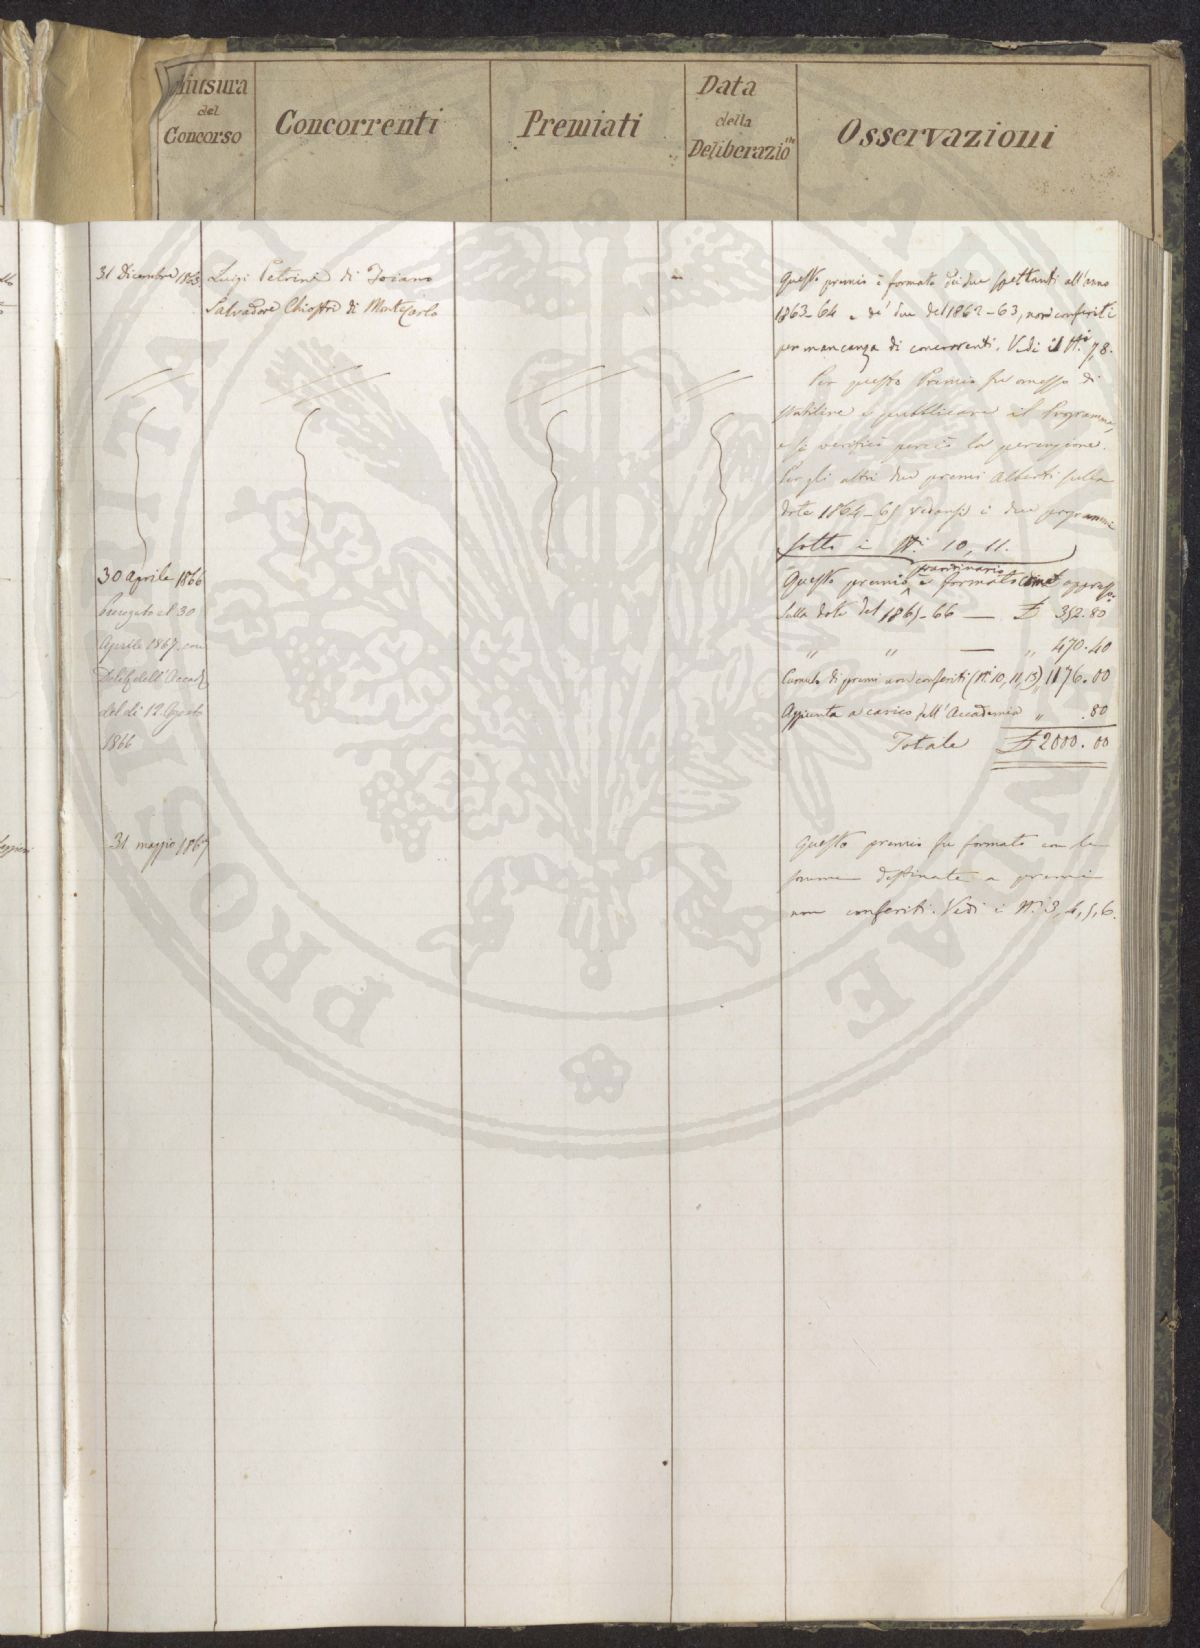 Chiusura
del
Concorso
Concorrenti
Premiati
Data
della
Deliberazio.ne
Osservazioni
31 Dicembre 1863
Luigi Petrini di Foiano
Salvadore Chiostri di MonteCarlo
Questo premio è formato dei due spettanti all'anno
1863-64 e de' due del 1862-63, non conferiti
per mancanza di concorrenti. Vedi il N.i 7, 8.
Per questo Premio fu omesso di
stabilire e pubblicare il Programma,
e si verificò perciò la perenzione.
Per gli altri due premi Alberti sulla
dote 1864-65 vedansi i due programmi
sotto i N.i 10, 11.
30 Aprile 1866
Prorogato al 30
Aprile 1867, con
Delib. dell'Accad.
del dì 12 Agosto
1866
Questo premio straordinario è formato come appresso
Sulla dote del 1865-66 — £ 352.80
" " — " 470.40
Cumulo di premi non conferiti (N.i 10, 11, 13) " 1176.00
Aggiunta a carico dell'Accademia " .80
Totale £ 2000.00
31 maggio 1867
Questo premio fu formato con le
somme destinate a premi
non conferiti. Vedi i N.i 3, 4, 5, 6.
PROSPERITATI PUBLICAE AUGENDAE